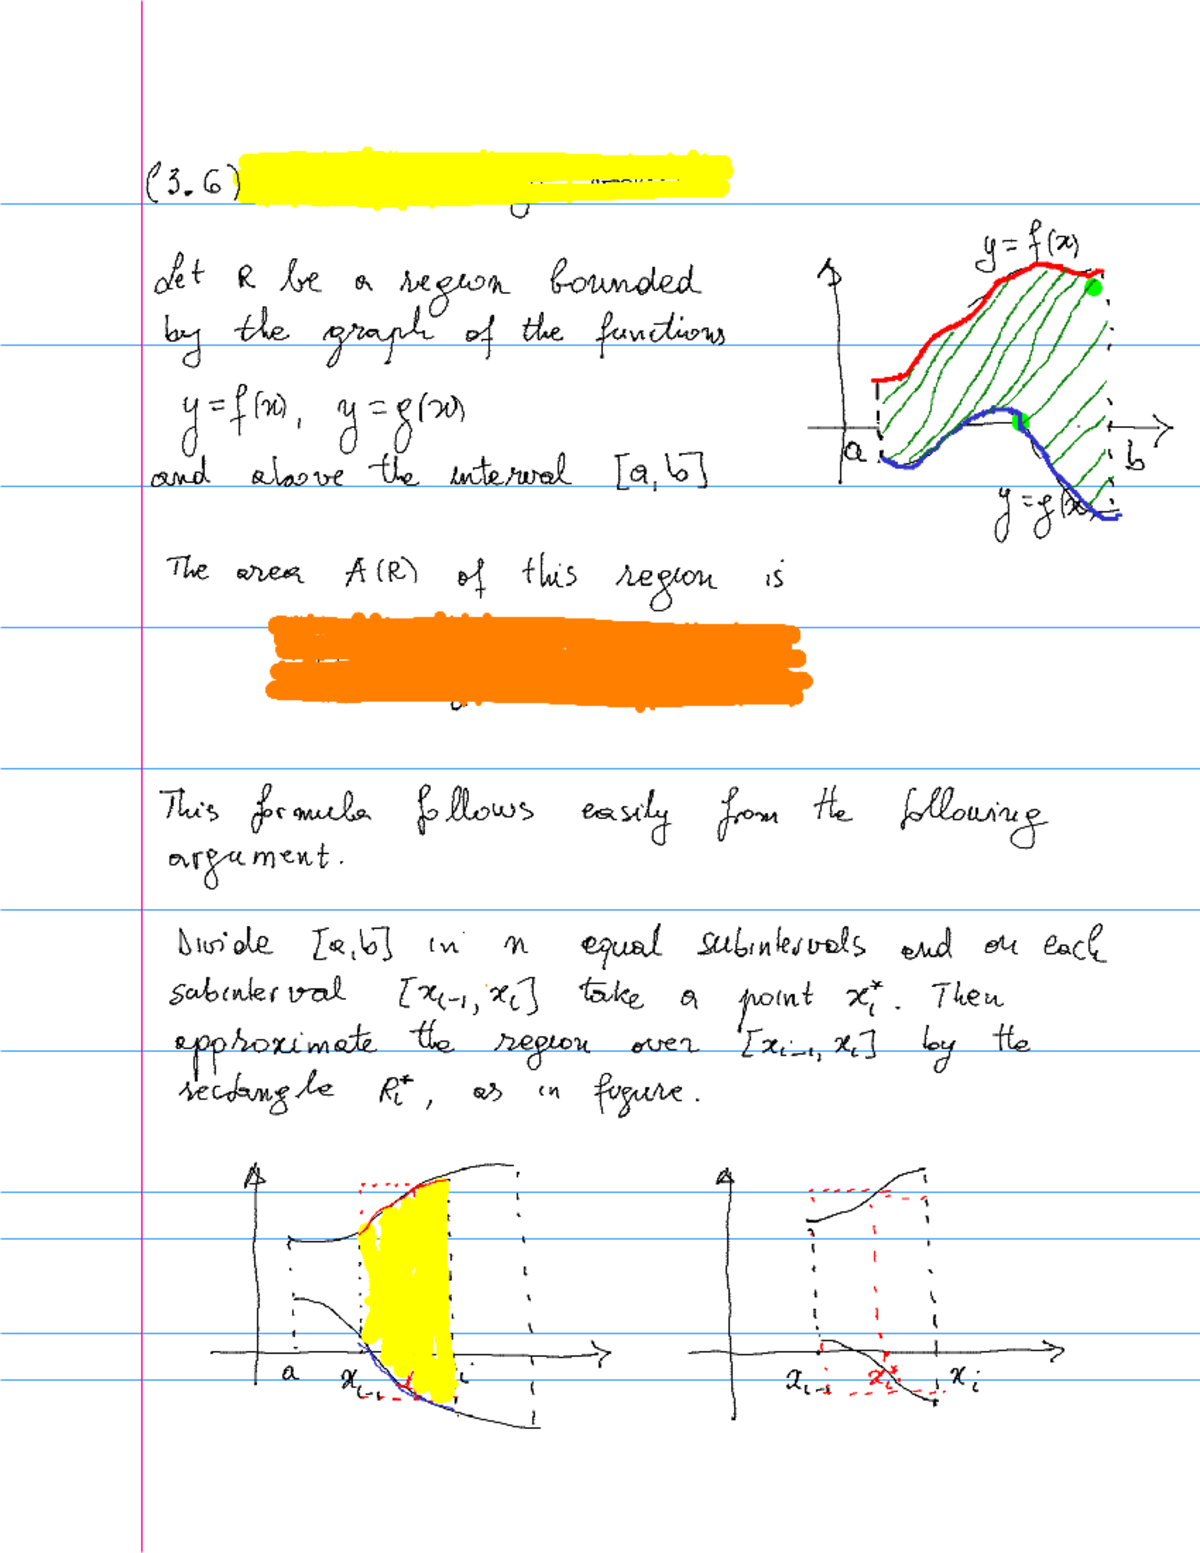 (3.6)
y = f(x)
Let R be a region bounded
by the graph of the functions
y = f(x), y = g(x)
a
b
and above the interval [a, b]
y = g(x)
The area A(R) of this region is
This formula follows easily from the following
argument.
Divide [a,b] in n equal subintervals and on each
subinterval [x_{i-1}, x_i] take a point x_i^*. Then
approximate the region over [x_{i-1}, x_i] by the
rectangle R_i^*, as in figure.
a x_{i-1} i
x_{i-1} x_i^* x_i